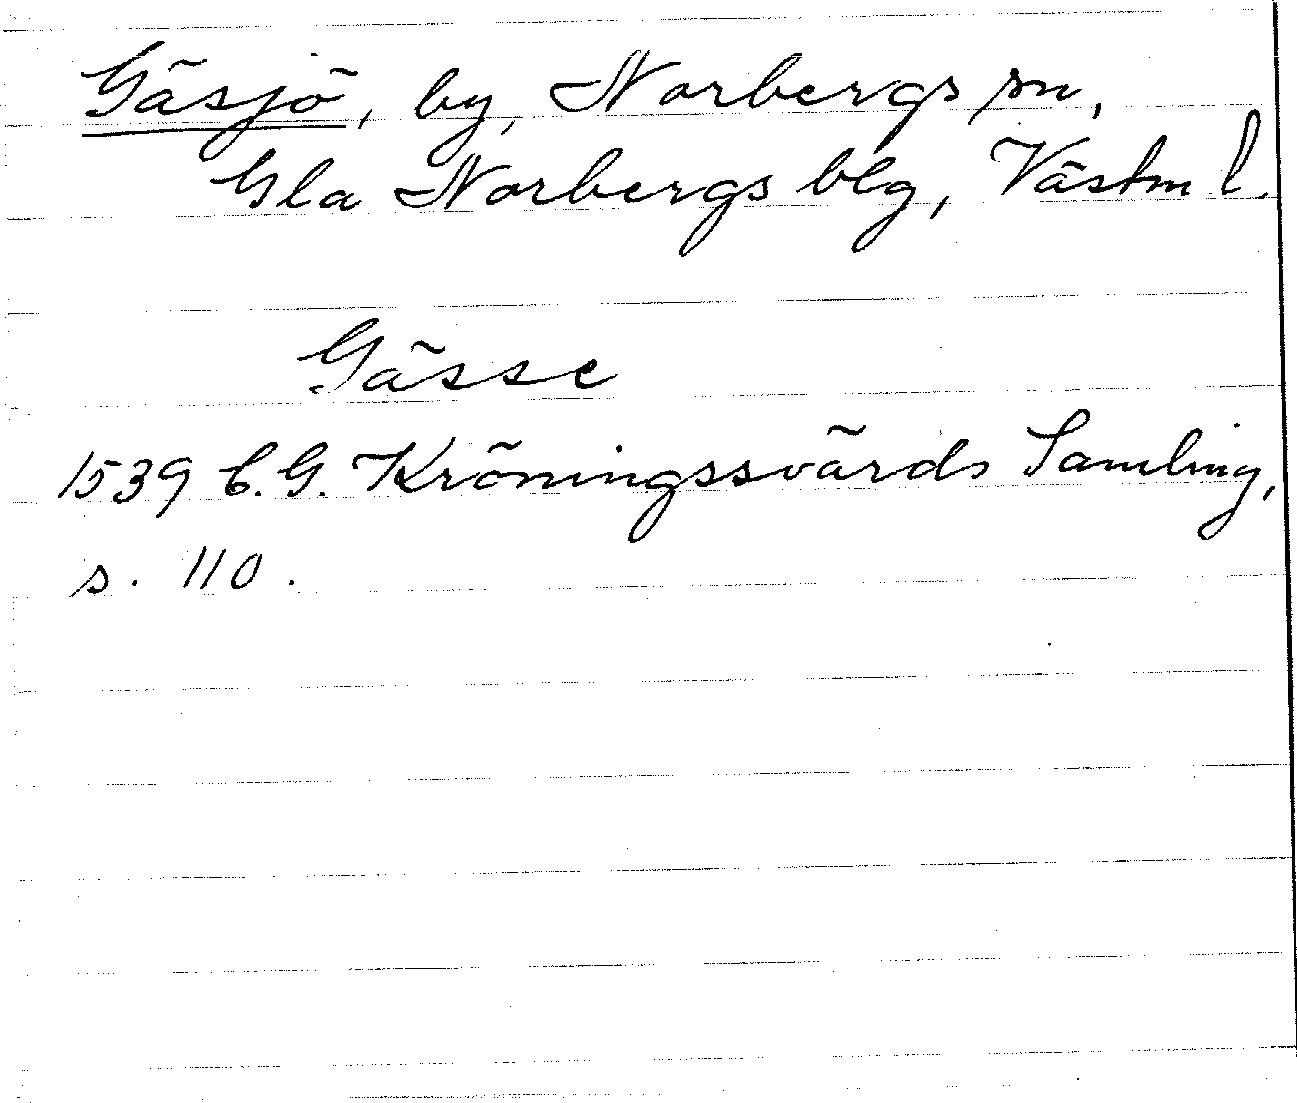 Gäsjö, by, Norbergs sn,
Gla Norbergs blg, Västm l.
Gässe
1539 C.G. Kröningssvärds Samling,
s. 110.